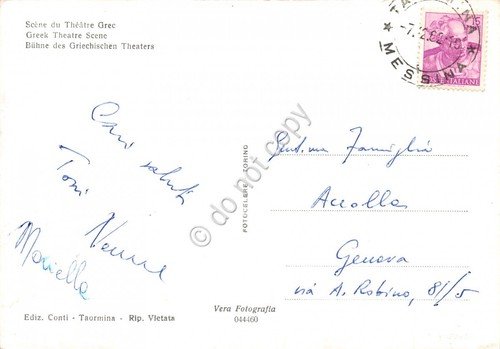 Scène du Théâtre Grec
Greek Theatre Scene
Bühne des Griechischen Theaters
MESSINA
ITALIANE
Cari saluti
Toni
Mariella
FOTOCELERE - TORINO
© do not copy
Gent.ma Famiglia
Accolla
Genova
via A. Robino, 81/5
Vera Fotografia
044460
Ediz. Conti - Taormina - Rip. Vietata